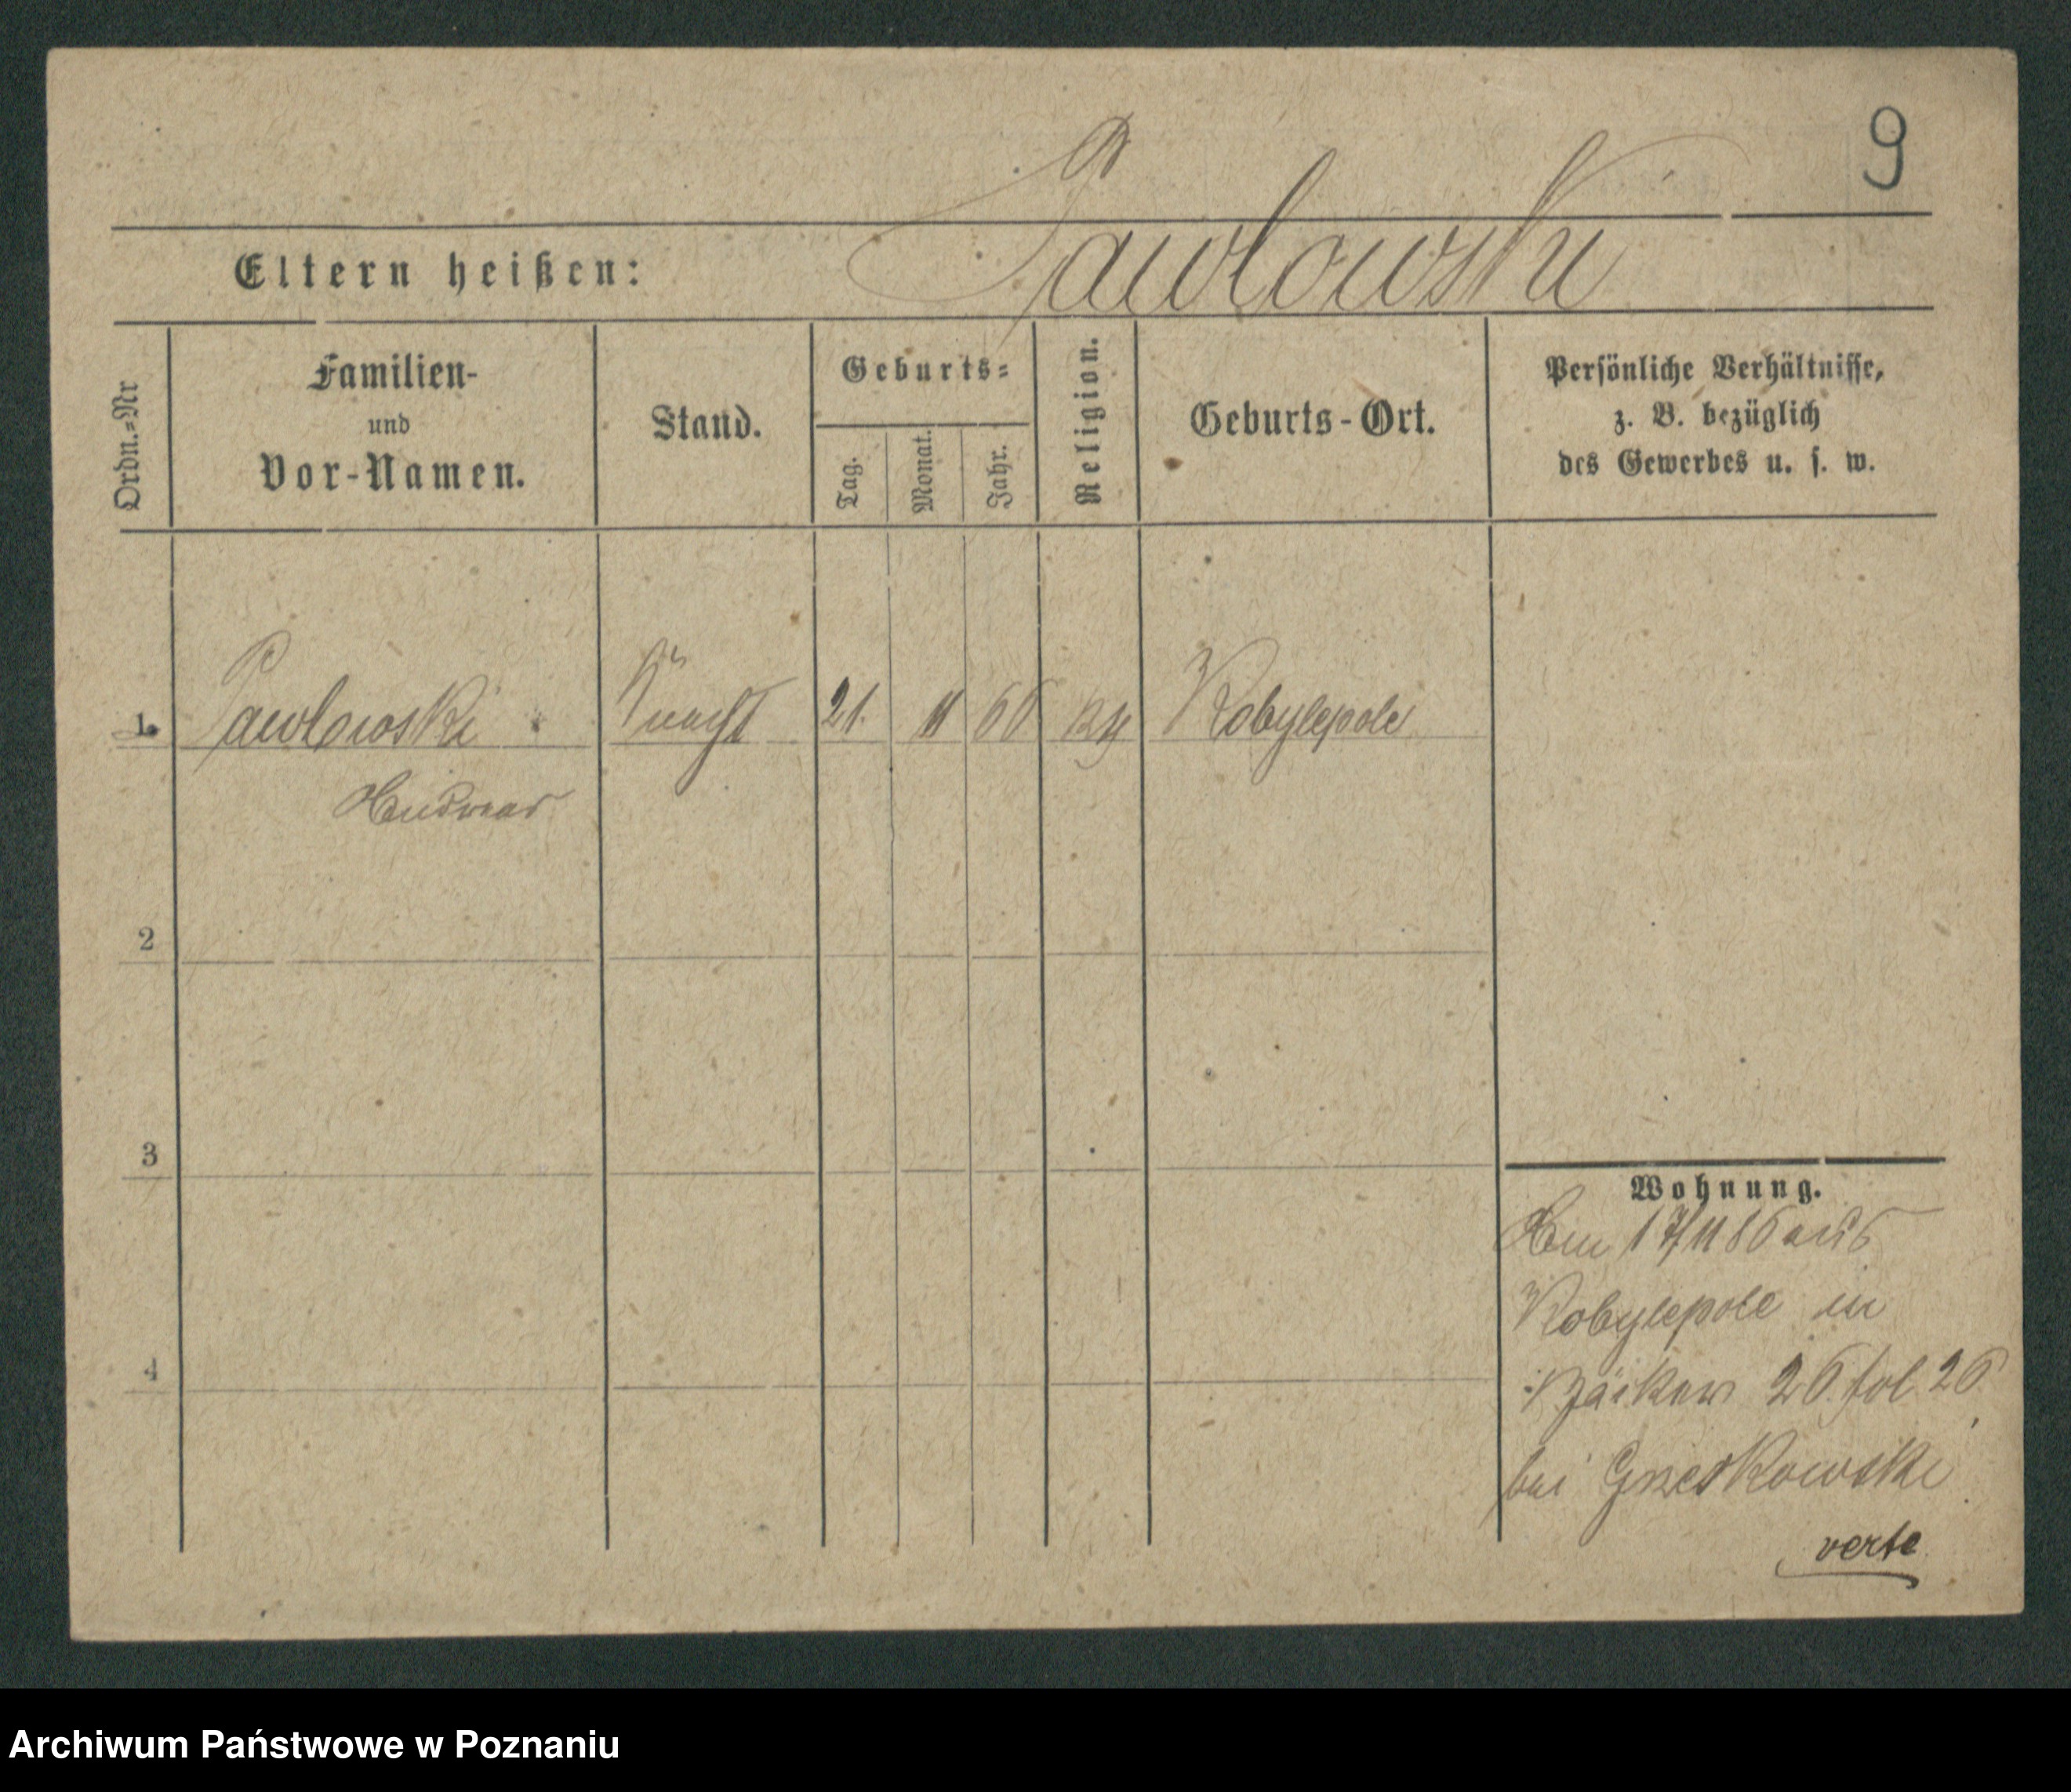 9
Pawlowski
Eltern heißen:
Ordn.=Nr
Familien-
und
Vor-Namen.
Stand.
Geburts=
Tag.
Monat.
Jahr.
Religion.
Geburts-Ort.
Persönliche Verhältnisse,
z. B. bezüglich
des Gewerbes u. s. w.
1. Pawlowski Knecht 21. 11 66 kth Kobylepole
Andreas
2
3
4
Wohnung.
Am 17/11 86 aus
Kobylepole in
26 fol 26.
bei
verte
Archiwum Państwowe w Poznaniu